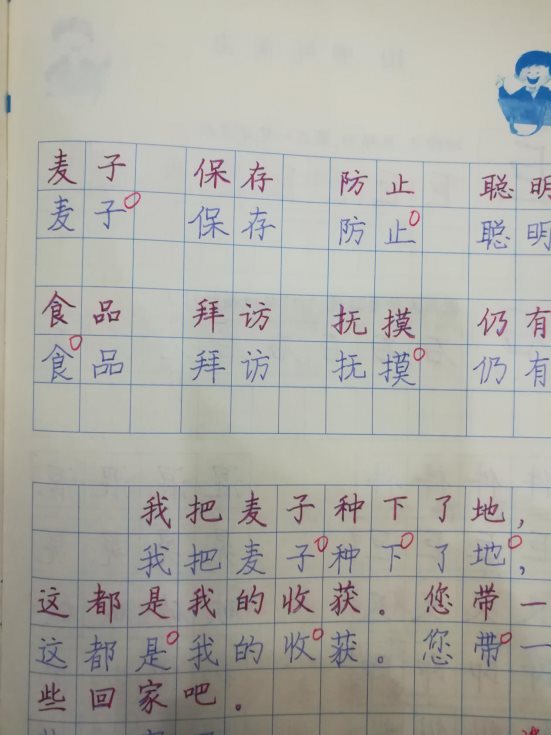 麦子 保存 防止 聪明
麦子 保存 防止 聪明
食品 拜访 抚摸 仍有
食品 拜访 抚摸 仍有
我把麦子种下了地，
我把麦子种下了地，
这都是我的收获。您带一
这都是我的收获。您带一
些回家吧。